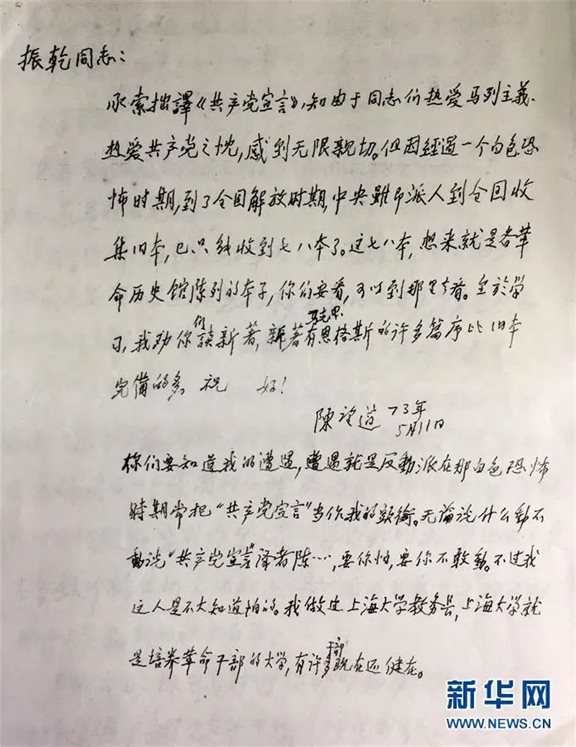 振乾同志：
承索拙譯《共产党宣言》，知由于同志们热爱马列主義、
热爱共产党之忱，感到无限親切。但因經過一个白色恐
怖时期，到了全国解放时期，中央虽币派人到全国收
集旧本，已只能收到七八本了。这七八本，想来就是各革
命历史馆陈列的本子，你们要看，可以到那里去看。至於学
习，我劝你们读新著，新著有馬克思恩格斯的许多篇序比旧本
完備的多。祝 好！
陳望道 73年
5月11日
你们要知道我的遭遇，遭遇就是反動派在那白色恐怖
时期常把“共产党宣言”当作我的头銜。无论说什么動不
動说“共产党宣言译者陈…，要你怕，要你不敢動。不过我
这人是不大知道怕的。我做过上海大学教务長，上海大学就
是培养革命干部的大学，有许多干部现在还健在。
新华网
WWW.NEWS.CN